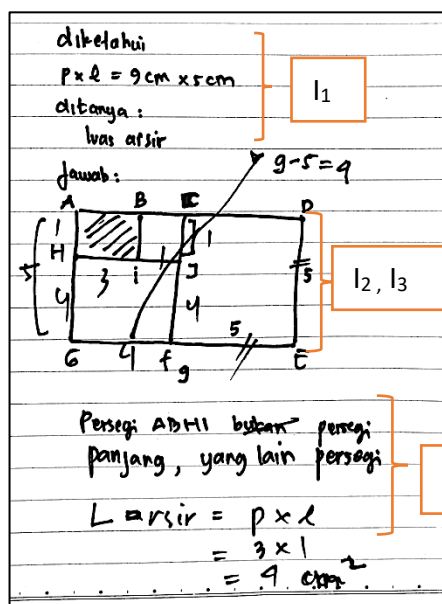 diketahui
p x l = 9 cm x 5 cm
ditanya :
luas arsir
I₁
Jawab :
9-5=4
A B C D
1 1
H 3 i 1 J
5 5
4 4
I₂, I₃
G 4 f 5 E
9
Persegi ABHI bukan persegi
panjang, yang lain persegi
L arsir = p x l
= 3 x 1
= 4 cm²